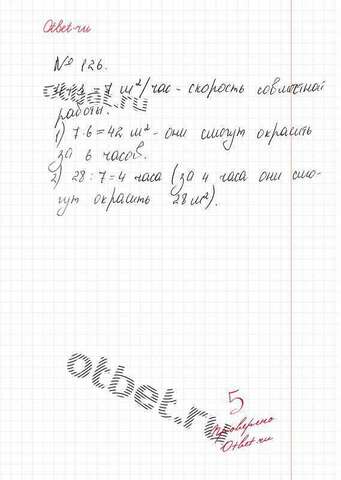 Otbet.ru
№ 126.
7 м²/час - скорость совместной
работы.
1) 7·6=42 м² - они смогут окрасить
за 6 часов.
2) 28:7=4 часа (за 4 часа они смо-
гут окрасить 28 м²).
otbet.ru
5
Проверено
Otbet.ru